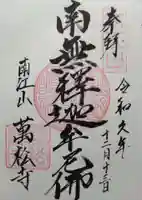 奉拝
令和久年
十二月十三日
南無釋迦牟尼佛
南江山
萬松寺